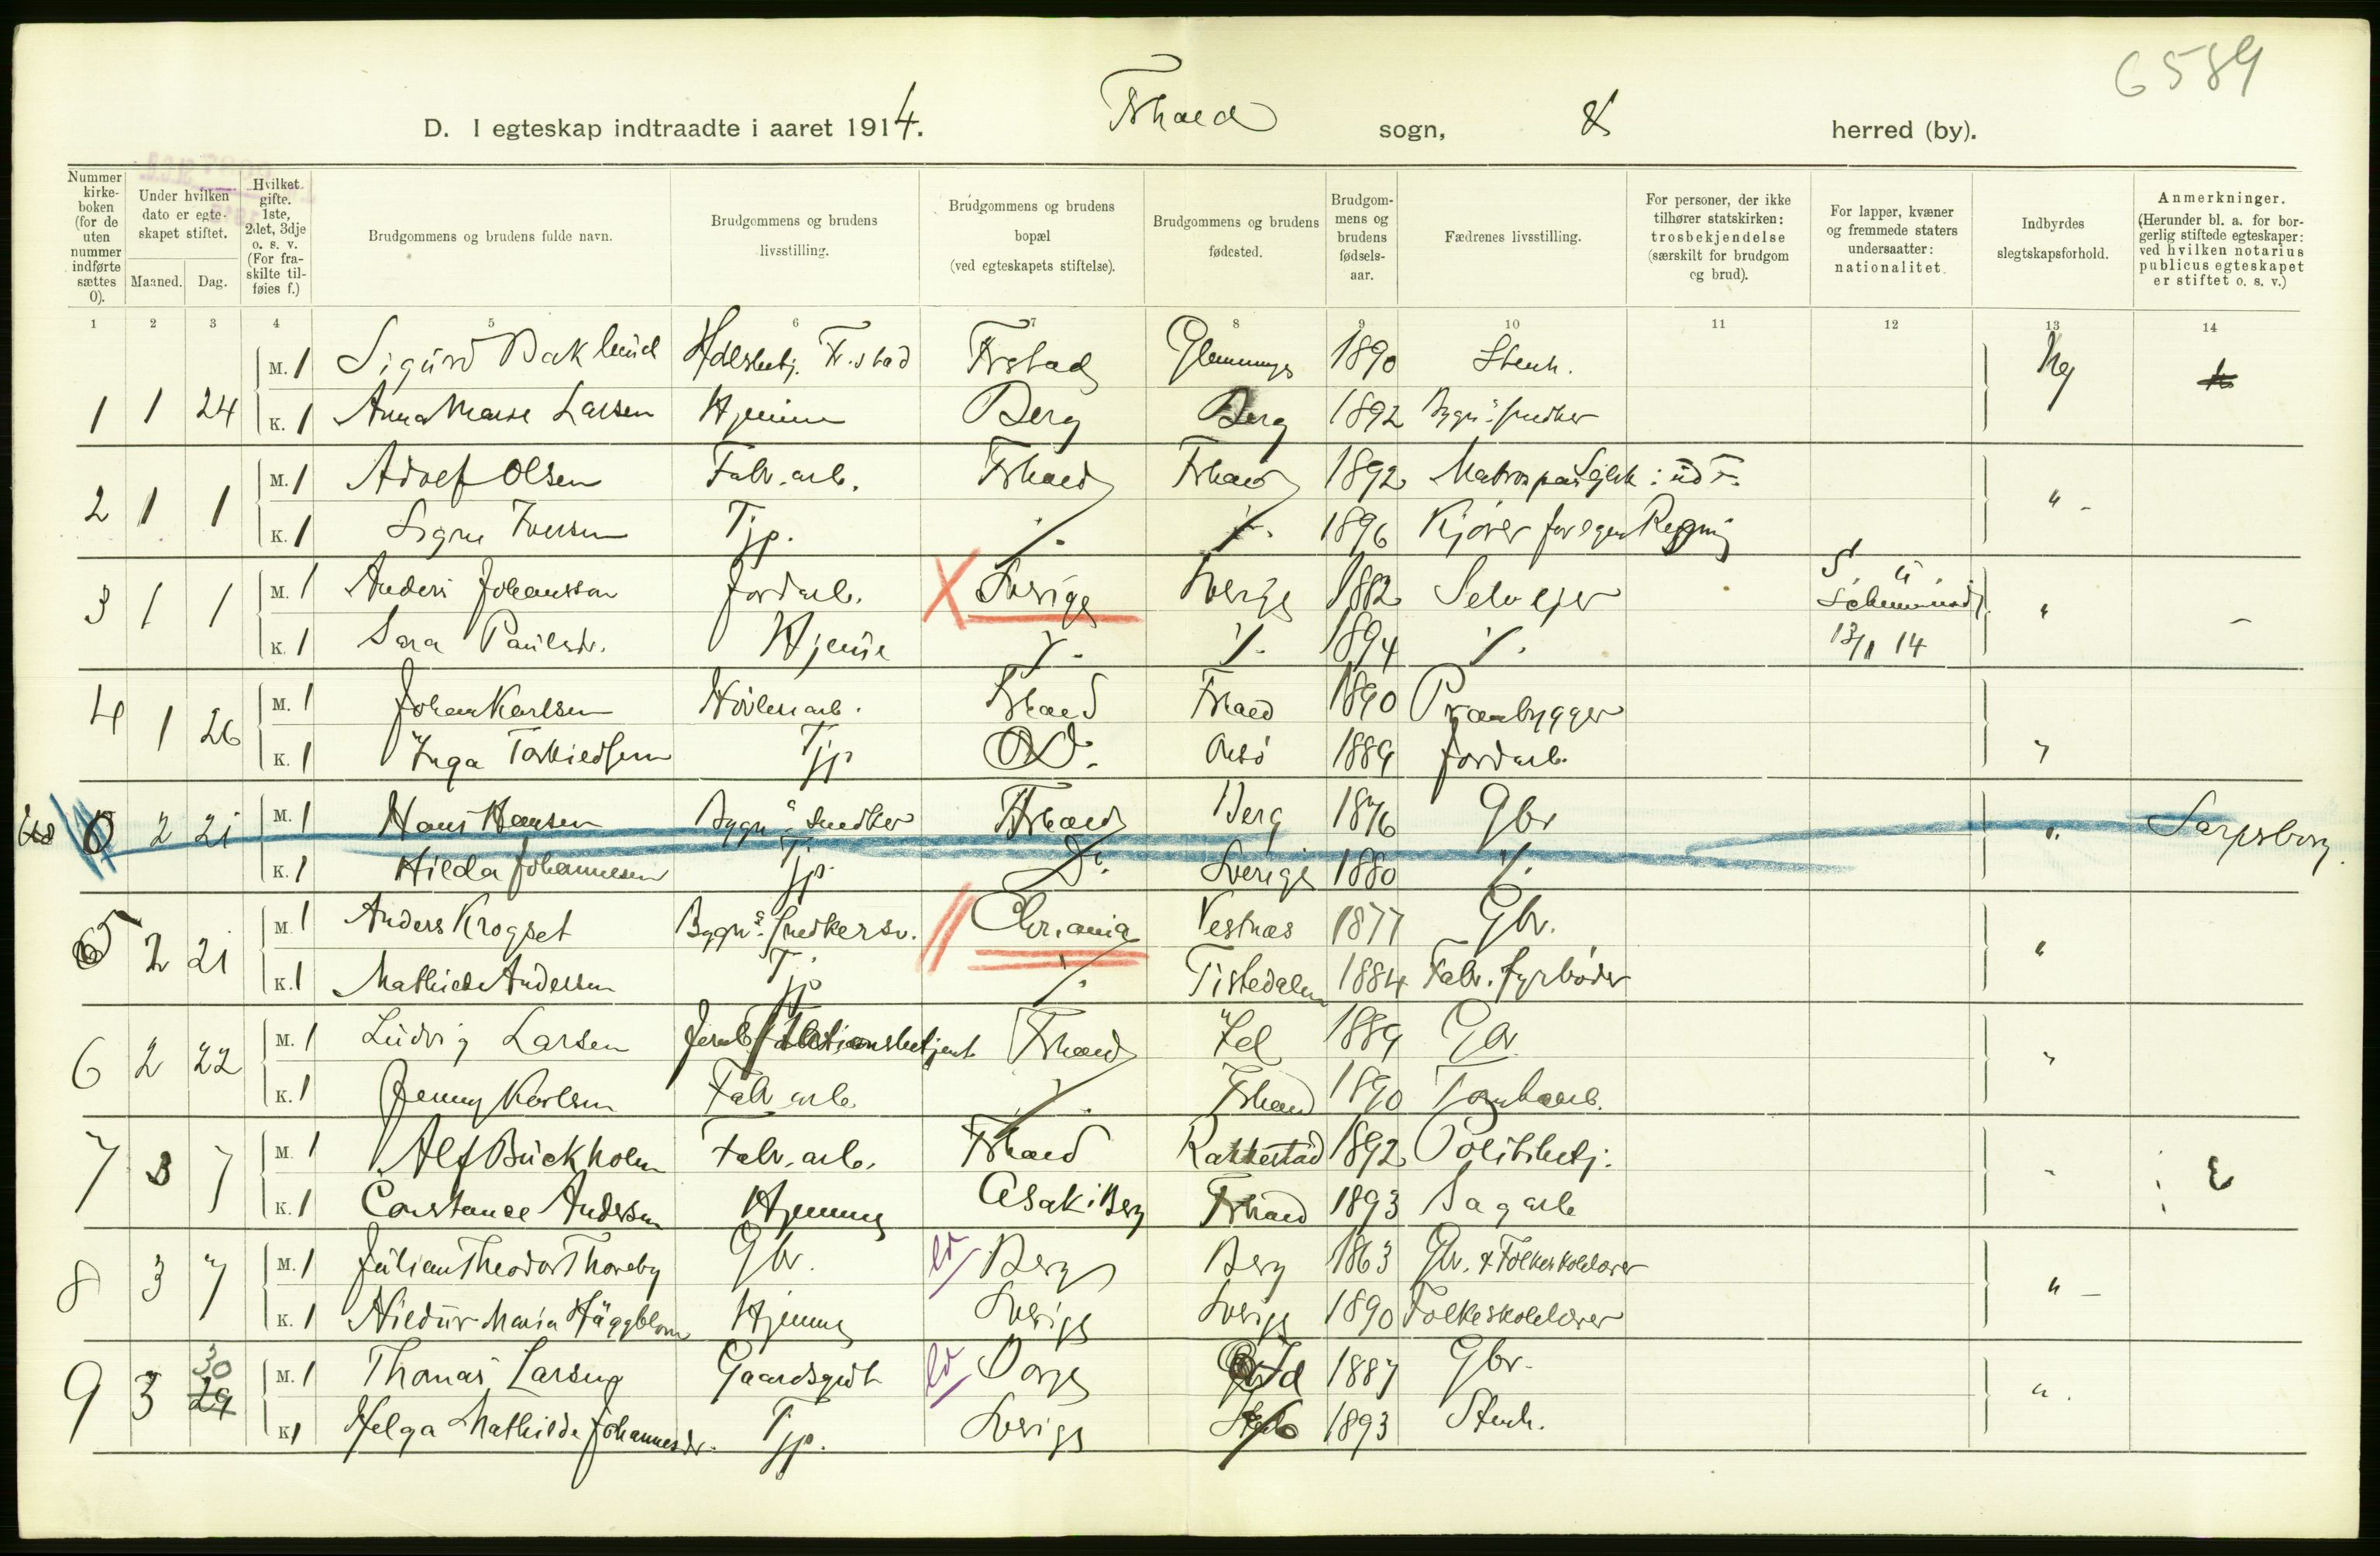 6584
D. I egteskap indtraadte i aaret 1914. Fr.hald sogn, & herred (by).
Nummer kirkeboken (for de uten nummer indførte sættes 0).
Under hvilken dato er egteskapet stiftet.
Maaned. Dag.
Hvilket gifte. 1ste, 2det, 3dje o. s. v. (For fraskilte tilføies f.)
Brudgommens og brudens fulde navn.
Brudgommens og brudens livsstilling.
Brudgommens og brudens bopæl (ved egteskapets stiftelse).
Brudgommens og brudens fødested.
Brudgommens og brudens fødselsaar.
Fædrenes livsstilling.
For personer, der ikke tilhører statskirken: trosbekjendelse (særskilt for brudgom og brud).
For lapper, kvæner og fremmede staters undersaatter: nationalitet.
Indbyrdes slegtskapsforhold.
Anmerkninger. (Herunder bl. a. for borgerlig stiftede egteskaper: ved hvilken notarius publicus egteskapet er stiftet o. s. v.)
1 2 3 4 5 6 7 8 9 10 11 12 13 14
M. 1 Sigurd Baklund Hdlsbetj. Fr.stad Frstad Glemminge 1890 Stenh. Nej
1 1 24 K. 1 Anna Marie Larsen Hjemme Berg Berg 1892 Bygn.snedker
M. 1 Adolf Olsen Fabr.arb. Frhald Frhald 1892 Matros paa Sejlsk: ud "
2 1 1 K. 1 Signe Iversen Tjp. 1896 Kjører for egen Regning
3 1 1 M. 1 Anders Johansson Jordarb. Sverige Sverige 1882 Selvejer "
K. 1 Sara Paulsdr. Hjemme 1894 13/1 14
4 1 26 M. 1 Johan Karlsen Høvleriarb. Frhald Frhald 1890 Prambygger
K. 1 Inga Torkildsen Tjp Do. Onsø 1889 Jordarb. "
0 2 21 M. 1 Hans Hansen Bygn.snedker Frhald Berg 1876 Gbr " Sarpsborg
K. 1 Hilda Johannesen Tjp. Do. Sverige 1880
5 2 21 M. 1 Anders Krogset Bygn.s snedkersv. Chr.ania Vestnes 1877 Gbr. "
K. 1 Mathilde Andersen Tjp Tistedalen 1884 Fabr. fyrbøder
6 2 22 M. 1 Ludvig Larsen Jernb. Stationsbetjent Frhald Id 1889 Gbr "
K. 1 Jenny Karlsen Fabr.arb. Frhald 1890 Tomtearb.
7 3 7 M. 1 Alf Buckholm Fabr.arb. Frhald Rakkestad 1892 Politibetj. "
K. 1 Constance Andersen Hjemme Asak i Berg Frhald 1893 Sagarb
8 3 7 M. 1 Julian Theodor Thoreby Gbr. Berg Berg 1863 Gbr. & Folkeskolelærer "
K. 1 Hildur Maria Häggblom Hjemme Sverige Sverige 1890 Folkeskolelærer
30
9 3 29 M. 1 Thomas Larsen Gaardsgut Borge Id 1887 Gbr. "
K 1 Helga Mathilde Johannesdr. Tjp. Sverige 1893 Stenh.